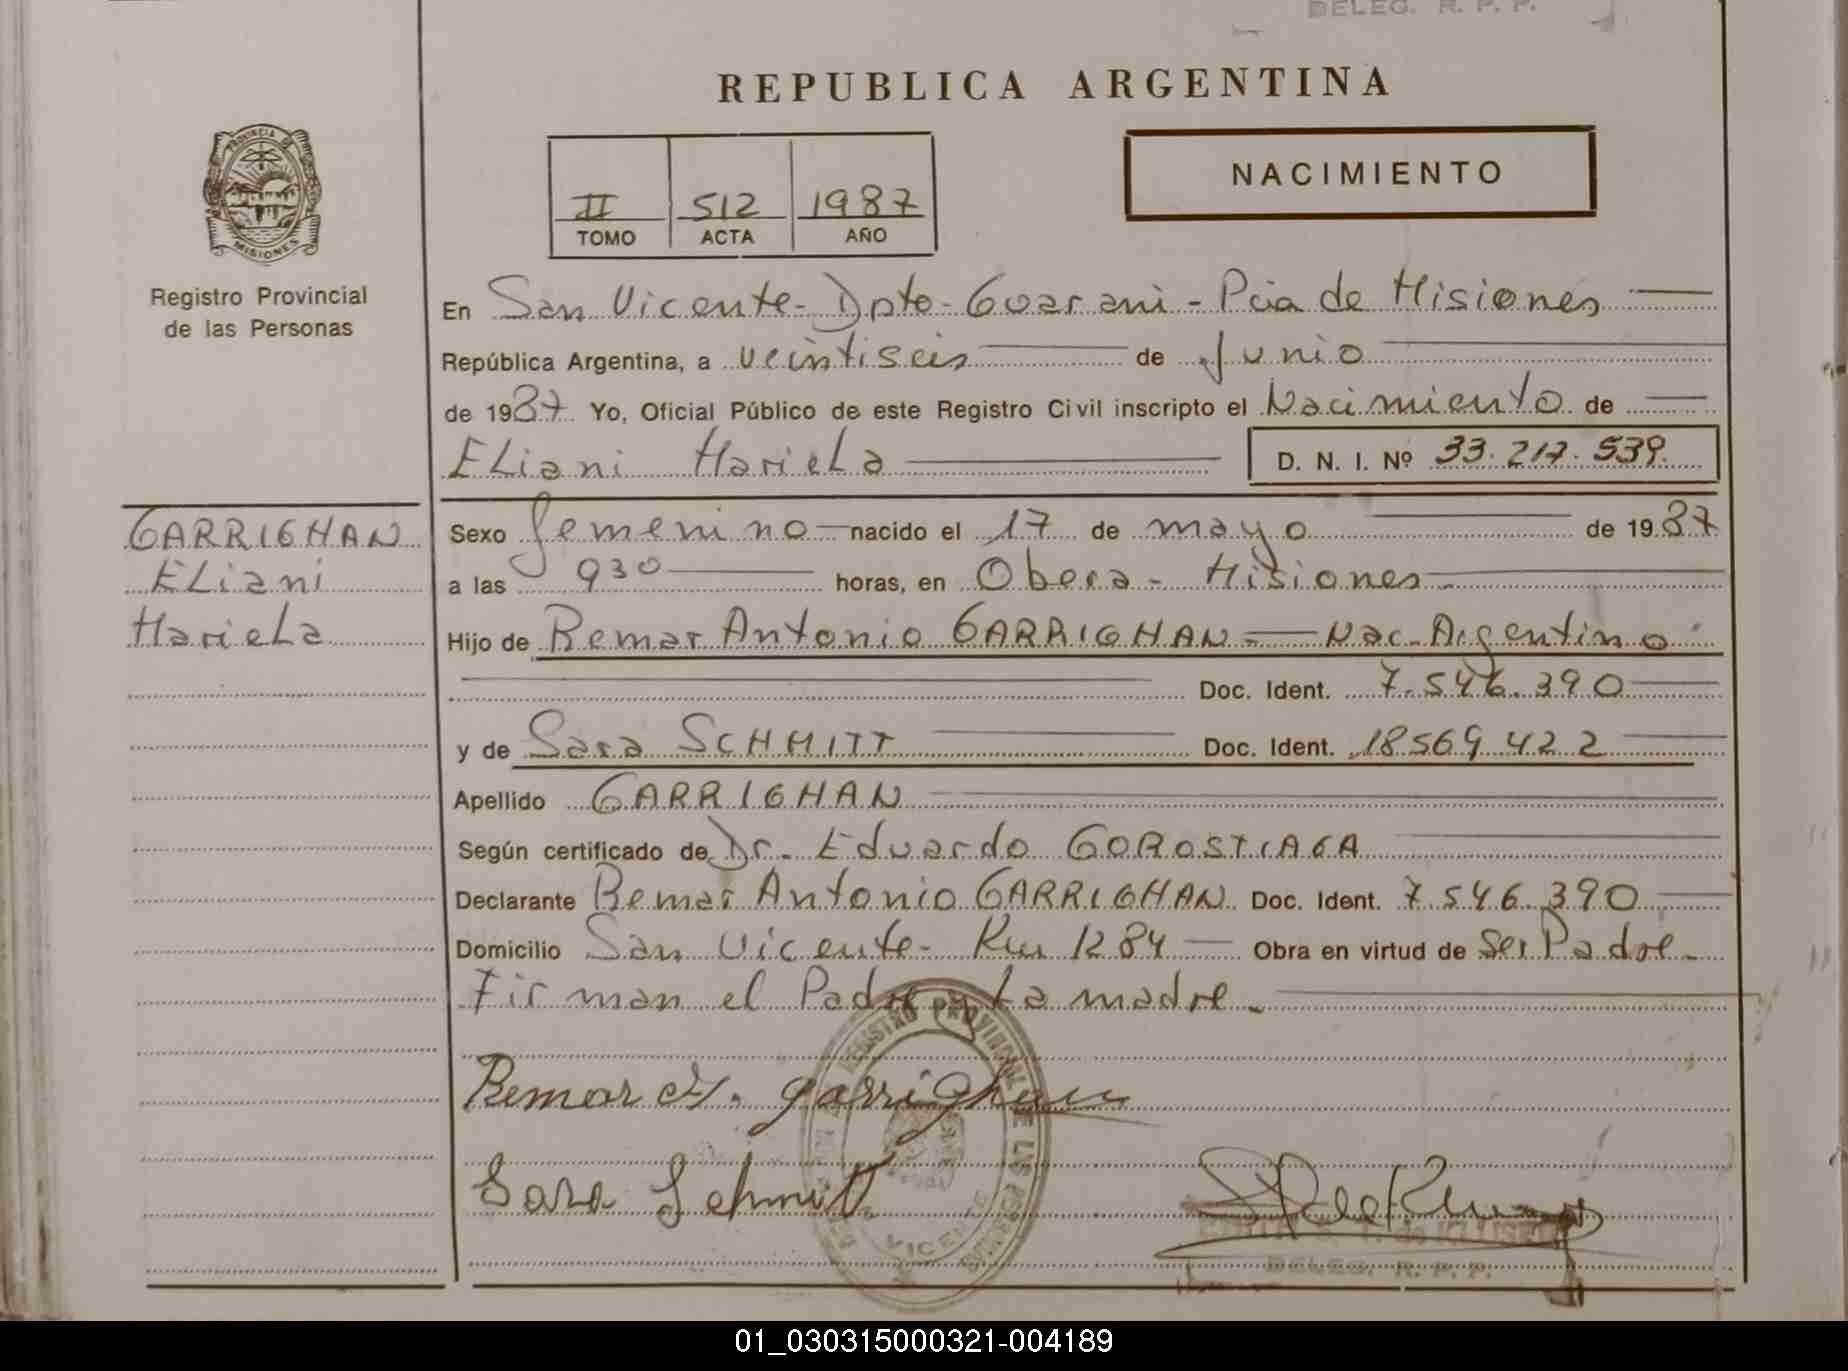 DELEG. R. P. P.
REPUBLICA ARGENTINA
PROVINCIA DE
MISIONES
Registro Provincial
de las Personas
II 512 1987
TOMO ACTA AÑO
NACIMIENTO
En San Vicente - Dpto - Guarani - Pcia de Misiones
República Argentina, a veintiseis de Junio
de 1987 Yo, Oficial Público de este Registro Civil inscripto el Nacimiento de
ELiani MarieLa D. N. I. Nº 33.217.539
GARRIGHAN
ELiani
MarieLa
Sexo femenino nacido el 17 de mayo de 1987
a las 930 horas, en Obera - Misiones
Hijo de Remar Antonio GARRIGHAN - Nac - Argentino
Doc. Ident. 7.546.390
y de Sara SCHMITT Doc. Ident. 18569422
Apellido GARRIGHAN
Según certificado de Dr. Eduardo GOROSTIAGA
Declarante Remar Antonio GARRIGHAN Doc. Ident. 7.546.390
Domicilio San Vicente - Km 1284 Obra en virtud de Ser Padre.
Firman el Padre y La madre.
Remar A. Garrighan
Sara Schmitt
REGISTRO PROVINCIAL DE LAS PERSONAS
VICENTE
DELEG. R. P. P.
01_030315000321-004189